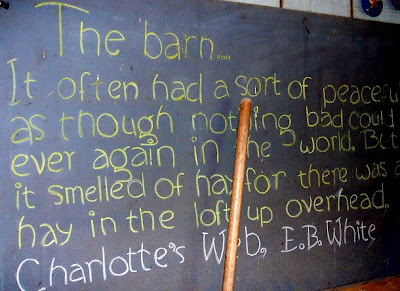 The barn...
It often had a sort of peaceful
as though nothing bad could
ever again in the world. But
it smelled of hay for there was a
hay in the loft up overhead.
Charlotte's Web, E.B. White